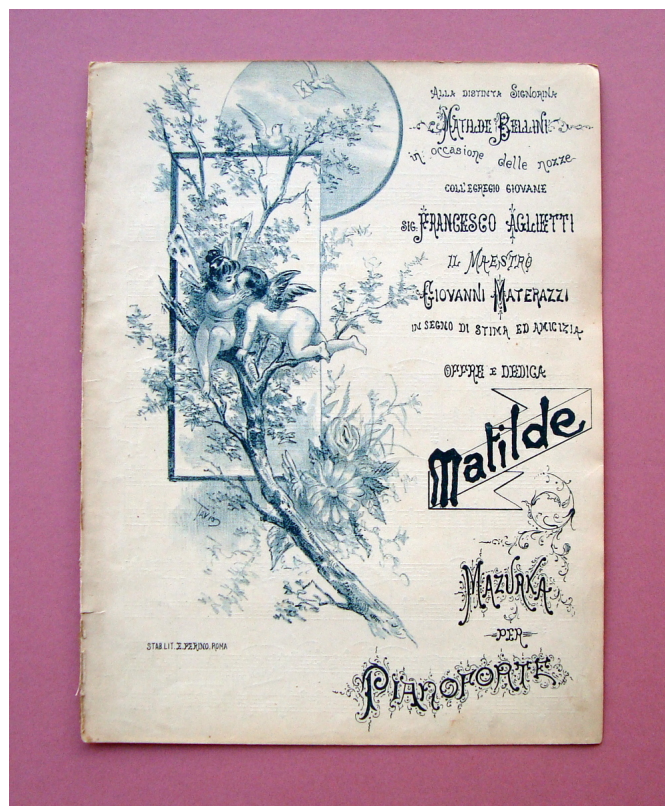 ALLA DISTINTA SIGNORINA
MATILDE BELLINI
in occasione delle nozze
COLL'EGREGIO GIOVANE
SIG. FRANCESCO AGLIETTI
IL MAESTRO
GIOVANNI MATERAZZI
IN SEGNO DI STIMA ED AMICIZIA
OFFRE E DEDICA
Matilde
MAZURKA
PER
PIANOFORTE
STAB. LIT. E. PERINO, ROMA